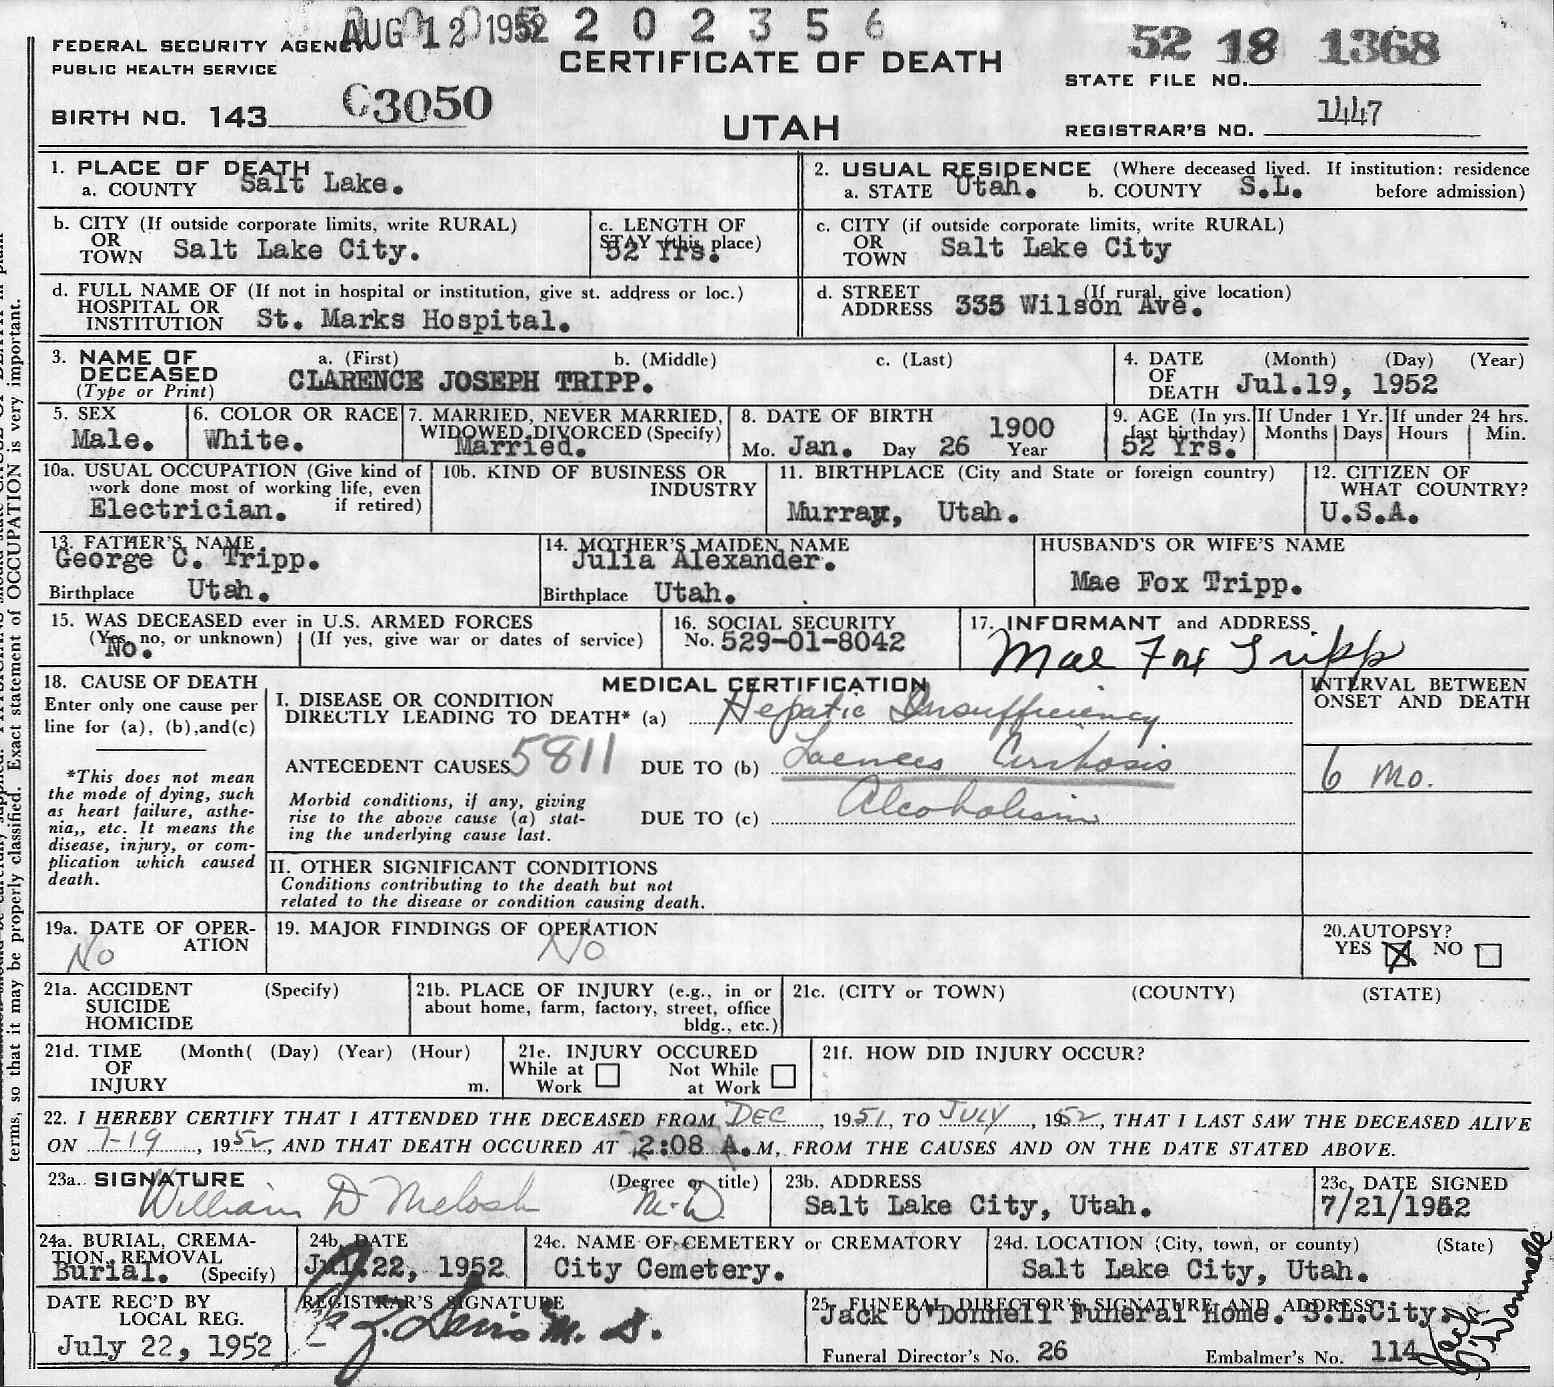 AUG 12 1952 2 0 2 3 5 6
FEDERAL SECURITY AGENCY
PUBLIC HEALTH SERVICE
CERTIFICATE OF DEATH
52 18 1368
STATE FILE NO.
BIRTH NO. 143 C3050
UTAH
1447
REGISTRAR'S NO.
1. PLACE OF DEATH
a. COUNTY Salt Lake.
2. USUAL RESIDENCE (Where deceased lived. If institution: residence before admission)
a. STATE Utah. b. COUNTY S.L.
b. CITY (If outside corporate limits, write RURAL)
OR
TOWN Salt Lake City.
c. LENGTH OF
STAY (this place)
52 Yrs.
c. CITY (if outside corporate limits, write RURAL)
OR
TOWN Salt Lake City
d. FULL NAME OF (If not in hospital or institution, give st. address or loc.)
HOSPITAL OR
INSTITUTION St. Marks Hospital.
d. STREET (If rural, give location)
ADDRESS 335 Wilson Ave.
3. NAME OF
DECEASED
(Type or Print)
a. (First) b. (Middle) c. (Last)
CLARENCE JOSEPH TRIPP.
4. DATE (Month) (Day) (Year)
OF
DEATH Jul.19, 1952
5. SEX
Male.
6. COLOR OR RACE
White.
7. MARRIED, NEVER MARRIED,
WIDOWED, DIVORCED (Specify)
Married.
8. DATE OF BIRTH
Mo. Jan. Day 26 1900 Year
9. AGE (In yrs.
last birthday)
52 Yrs.
If Under 1 Yr.
Months Days
If under 24 hrs.
Hours Min.
10a. USUAL OCCUPATION (Give kind of
work done most of working life, even
if retired)
Electrician.
10b. KIND OF BUSINESS OR
INDUSTRY
11. BIRTHPLACE (City and State or foreign country)
Murray, Utah.
12. CITIZEN OF
WHAT COUNTRY?
U.S.A.
13. FATHER'S NAME
George C. Tripp.
Birthplace Utah.
14. MOTHER'S MAIDEN NAME
Julia Alexander.
Birthplace Utah.
HUSBAND'S OR WIFE'S NAME
Mae Fox Tripp.
15. WAS DECEASED ever in U.S. ARMED FORCES
(Yes, no, or unknown) (If yes, give war or dates of service)
No.
16. SOCIAL SECURITY
No. 529-01-8042
17. INFORMANT and ADDRESS
Mae Fox Tripp
18. CAUSE OF DEATH
Enter only one cause per
line for (a), (b),and(c)
*This does not mean
the mode of dying, such
as heart failure, asthe-
nia,, etc. It means the
disease, injury, or com-
plication which caused
death.
MEDICAL CERTIFICATION
I. DISEASE OR CONDITION
DIRECTLY LEADING TO DEATH* (a) Hepatic Insufficiency
ANTECEDENT CAUSES 5811 DUE TO (b) Laennecs Cirrhosis
Morbid conditions, if any, giving
rise to the above cause (a) stat-
ing the underlying cause last.
DUE TO (c) Alcoholism
II. OTHER SIGNIFICANT CONDITIONS
Conditions contributing to the death but not
related to the disease or condition causing death.
INTERVAL BETWEEN
ONSET AND DEATH
6 Mo.
19a. DATE OF OPER-
ATION
No
19. MAJOR FINDINGS OF OPERATION
No
20.AUTOPSY?
YES X NO
21a. ACCIDENT (Specify)
SUICIDE
HOMICIDE
21b. PLACE OF INJURY (e.g., in or
about home, farm, factory, street, office
bldg., etc.)
21c. (CITY or TOWN) (COUNTY) (STATE)
21d. TIME (Month( (Day) (Year) (Hour)
OF
INJURY m.
21e. INJURY OCCURED
While at Work Not While at Work
21f. HOW DID INJURY OCCUR?
22. I HEREBY CERTIFY THAT I ATTENDED THE DECEASED FROM DEC, 1951, TO JULY, 1952, THAT I LAST SAW THE DECEASED ALIVE
ON 7-19, 1952, AND THAT DEATH OCCURED AT 2:08 A.M, FROM THE CAUSES AND ON THE DATE STATED ABOVE.
23a. SIGNATURE (Degree or title)
William D Melosh M.D.
23b. ADDRESS
Salt Lake City, Utah.
23c. DATE SIGNED
7/21/1952
24a. BURIAL, CREMA-
TION, REMOVAL
Burial. (Specify)
24b. DATE
Jul 22, 1952
24c. NAME OF CEMETERY or CREMATORY
City Cemetery.
24d. LOCATION (City, town, or county) (State)
Salt Lake City, Utah.
DATE REC'D BY
LOCAL REG.
July 22, 1952
REGISTRAR'S SIGNATURE
M. D.
25. FUNERAL DIRECTOR'S SIGNATURE AND ADDRESS
Jack O'Donnell Funeral Home. S.L.City.
Funeral Director's No. 26 Embalmer's No. 114
Jack O'Donnell
terms, so that it may be properly classified. Exact statement of OCCUPATION is very important.